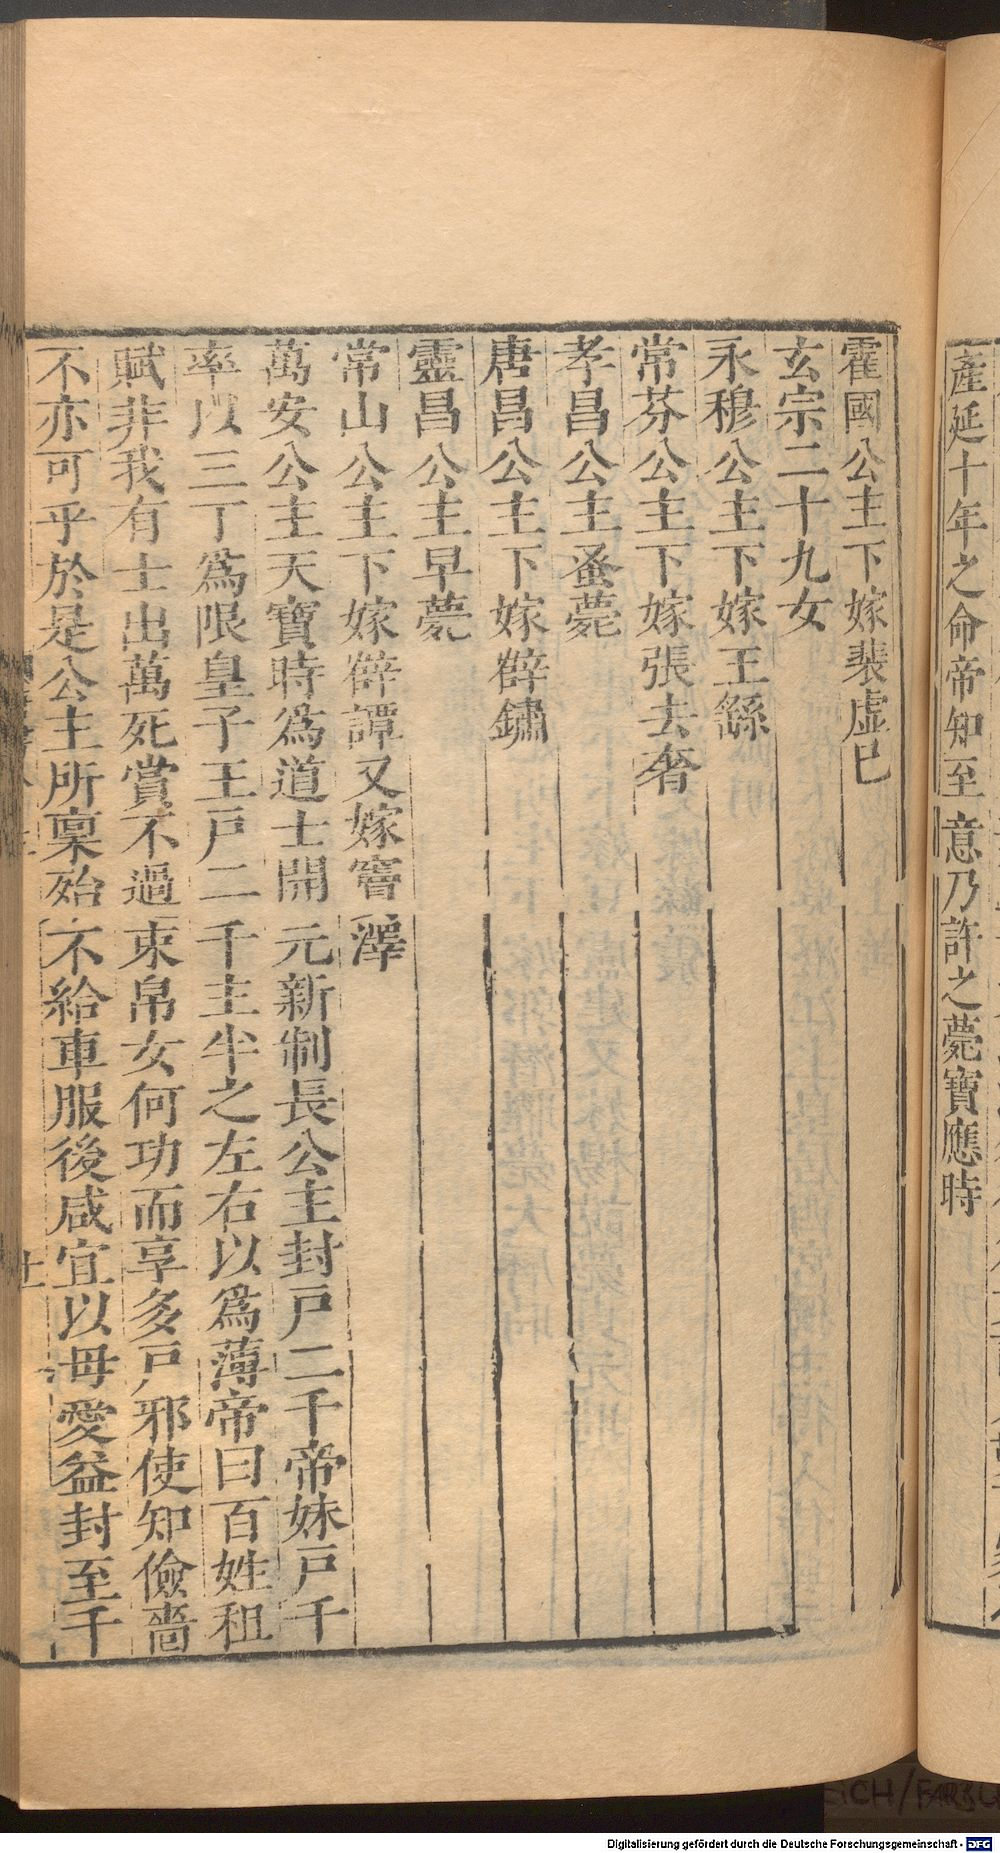 產延十年之命帝知至意乃許之薨寶應時
霍國公主下嫁裴虛已
玄宗二十九女
永穆公主下嫁王繇
常芬公主下嫁張去奢
孝昌公主蚤薨
唐昌公主下嫁薛鏽
靈昌公主早薨
常山公主下嫁薛譚又嫁竇澤
萬安公主天寶時爲道士開元新制長公主封戶二千帝妹戶千
率以三丁爲限皇子王戶二千主半之左右以爲薄帝曰百姓租
賦非我有士出萬死賞不過束帛女何功而享多戶邪使知儉嗇
不亦可乎於是公主所稟殆不給車服後咸宜以毋愛益封至千
Digitalisierung gefördert durch die Deutsche Forschungsgemeinschaft - DFG